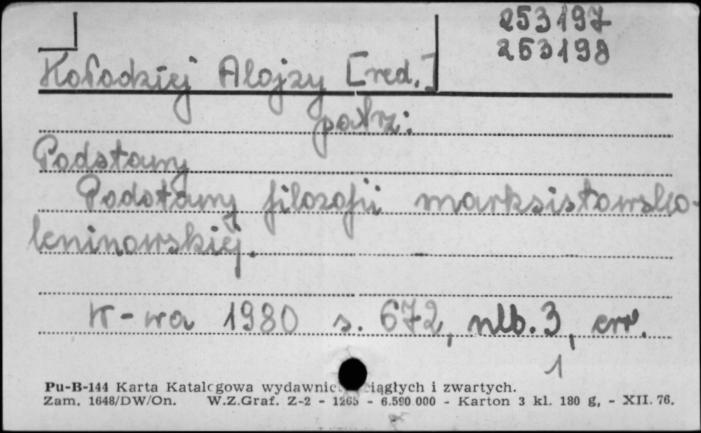 253197
253198
Kołodziej Alojzy [red.]
patrz:
Podstawy
Podstawy filozofii marksistowsko-
leninowskiej.
W-wa 1980 s. 672, nlb. 3, err.
1
Pu-B-144 Karta Katalogowa wydawnic ciągłych i zwartych.
Zam. 1648/DW/On. W.Z.Graf. Z-2 - 1265 - 6.590 000 - Karton 3 kl. 180 g, - XII. 76.